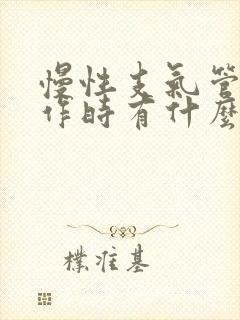 慢性支氣管
作時有什麼
樸准基